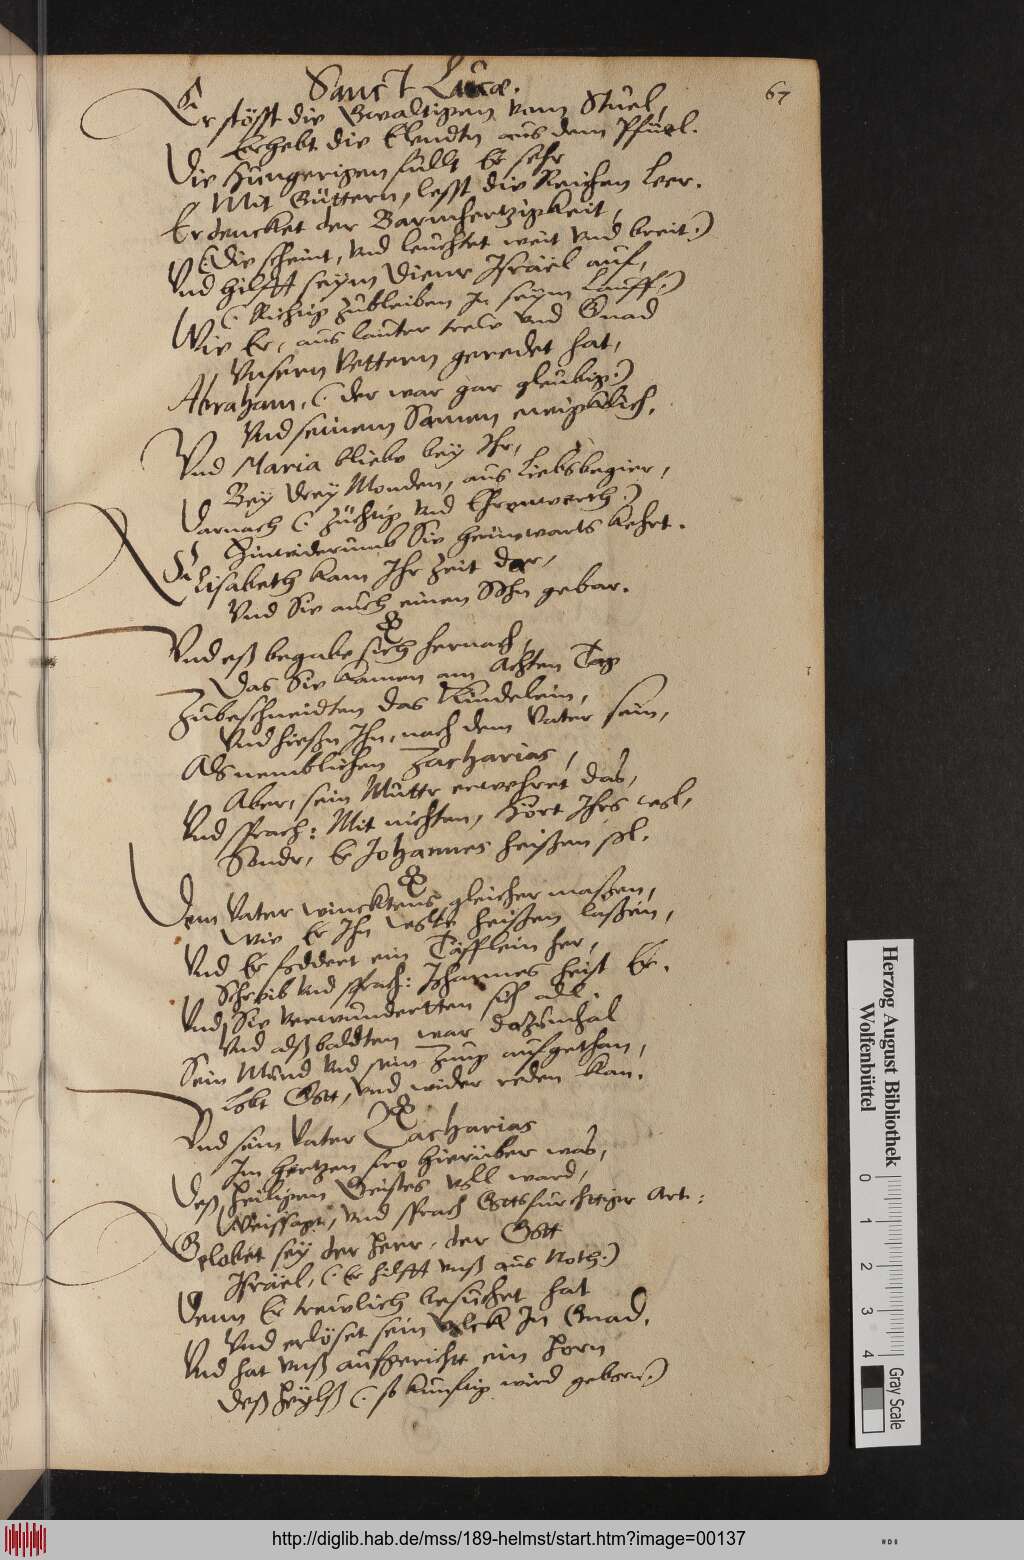 Sanct Lucæ.
67
Er stösst die Gwaltigen vom Stuel,
Erhebt die Elendtn aus dem Pfuel.
Die Hungerigen füllt Er sehr
Mit Güttern, lesst die Reichen leer.
Er dencket der Barmhertzigkeit,
(: Die scheint, vnd leuchtet weit vnd breit:)
Vnd hilfft seym Diener Israël auf,
(: Richtig zubleiben In seym Lauff:)
Wie Er, aus lauter trew vnd Gnad
Vnsern Vettern geredet hat,
Abraham, (: der war gar gleubig:)
Vnd seinem Samen ewigklich.
Vnd Maria bliebe bey Ihr,
Bey drey Monden, aus Liebsbegier,
Darnach (: züchtig vnd Ehrenwerth:)
Hinwiderumb Sie heimwarts kehrt.
Elisabeth kam Ihr Zeit dar,
Vnd Sie auch einen Sohn gebar.
Vnd eß begabe sich hernach,
Das Sie kamen am Achten Tag
Zubeschneidten das Kindelein,
Vnd hießn Ihn, nach dem Vater sein,
Als nemblichen Zacharias,
Aber, sein Muttr erwehret das,
Vnd sprach: Mit nichten, Hört Ihrs wol,
Sondr, Er Johannes heißen sol.
Dem Vater wincktens gleicher maßen,
Wie Er Ihn wolte heißen laßen,
Vnd Er foddert ein Täfflein her,
Schreib vnd sprach: Johannes heist Er.
Vnd Sie verwundertten sich all
Vnd alßbaldten war dazumhal
Sein Mund vnd sein Zung aufgethan,
Lobt Gott, vnd wider reden kan.
Vnd sein Vater Zacharias
Im hertzen fro hierüber was,
Deß heiligen Geistes voll ward,
Weissagt, vnd sprach Gottsfürchtiger Art:
Gelobet sey der Herr, der Gott
Israël, (: Er hilfft vnß aus Noth:)
Denn Er trewlich besuchet hat
Vnd erlöset sein Volck In Gnad,
Vnd hat vnß aufgericht ein Horn
Deß Heylß (: so künftig wird geborn:)
Herzog August Bibliothek
Wolfenbüttel
0 1 2 3 4
Gray Scale
http://diglib.hab.de/mss/189-helmst/start.htm?image=00137